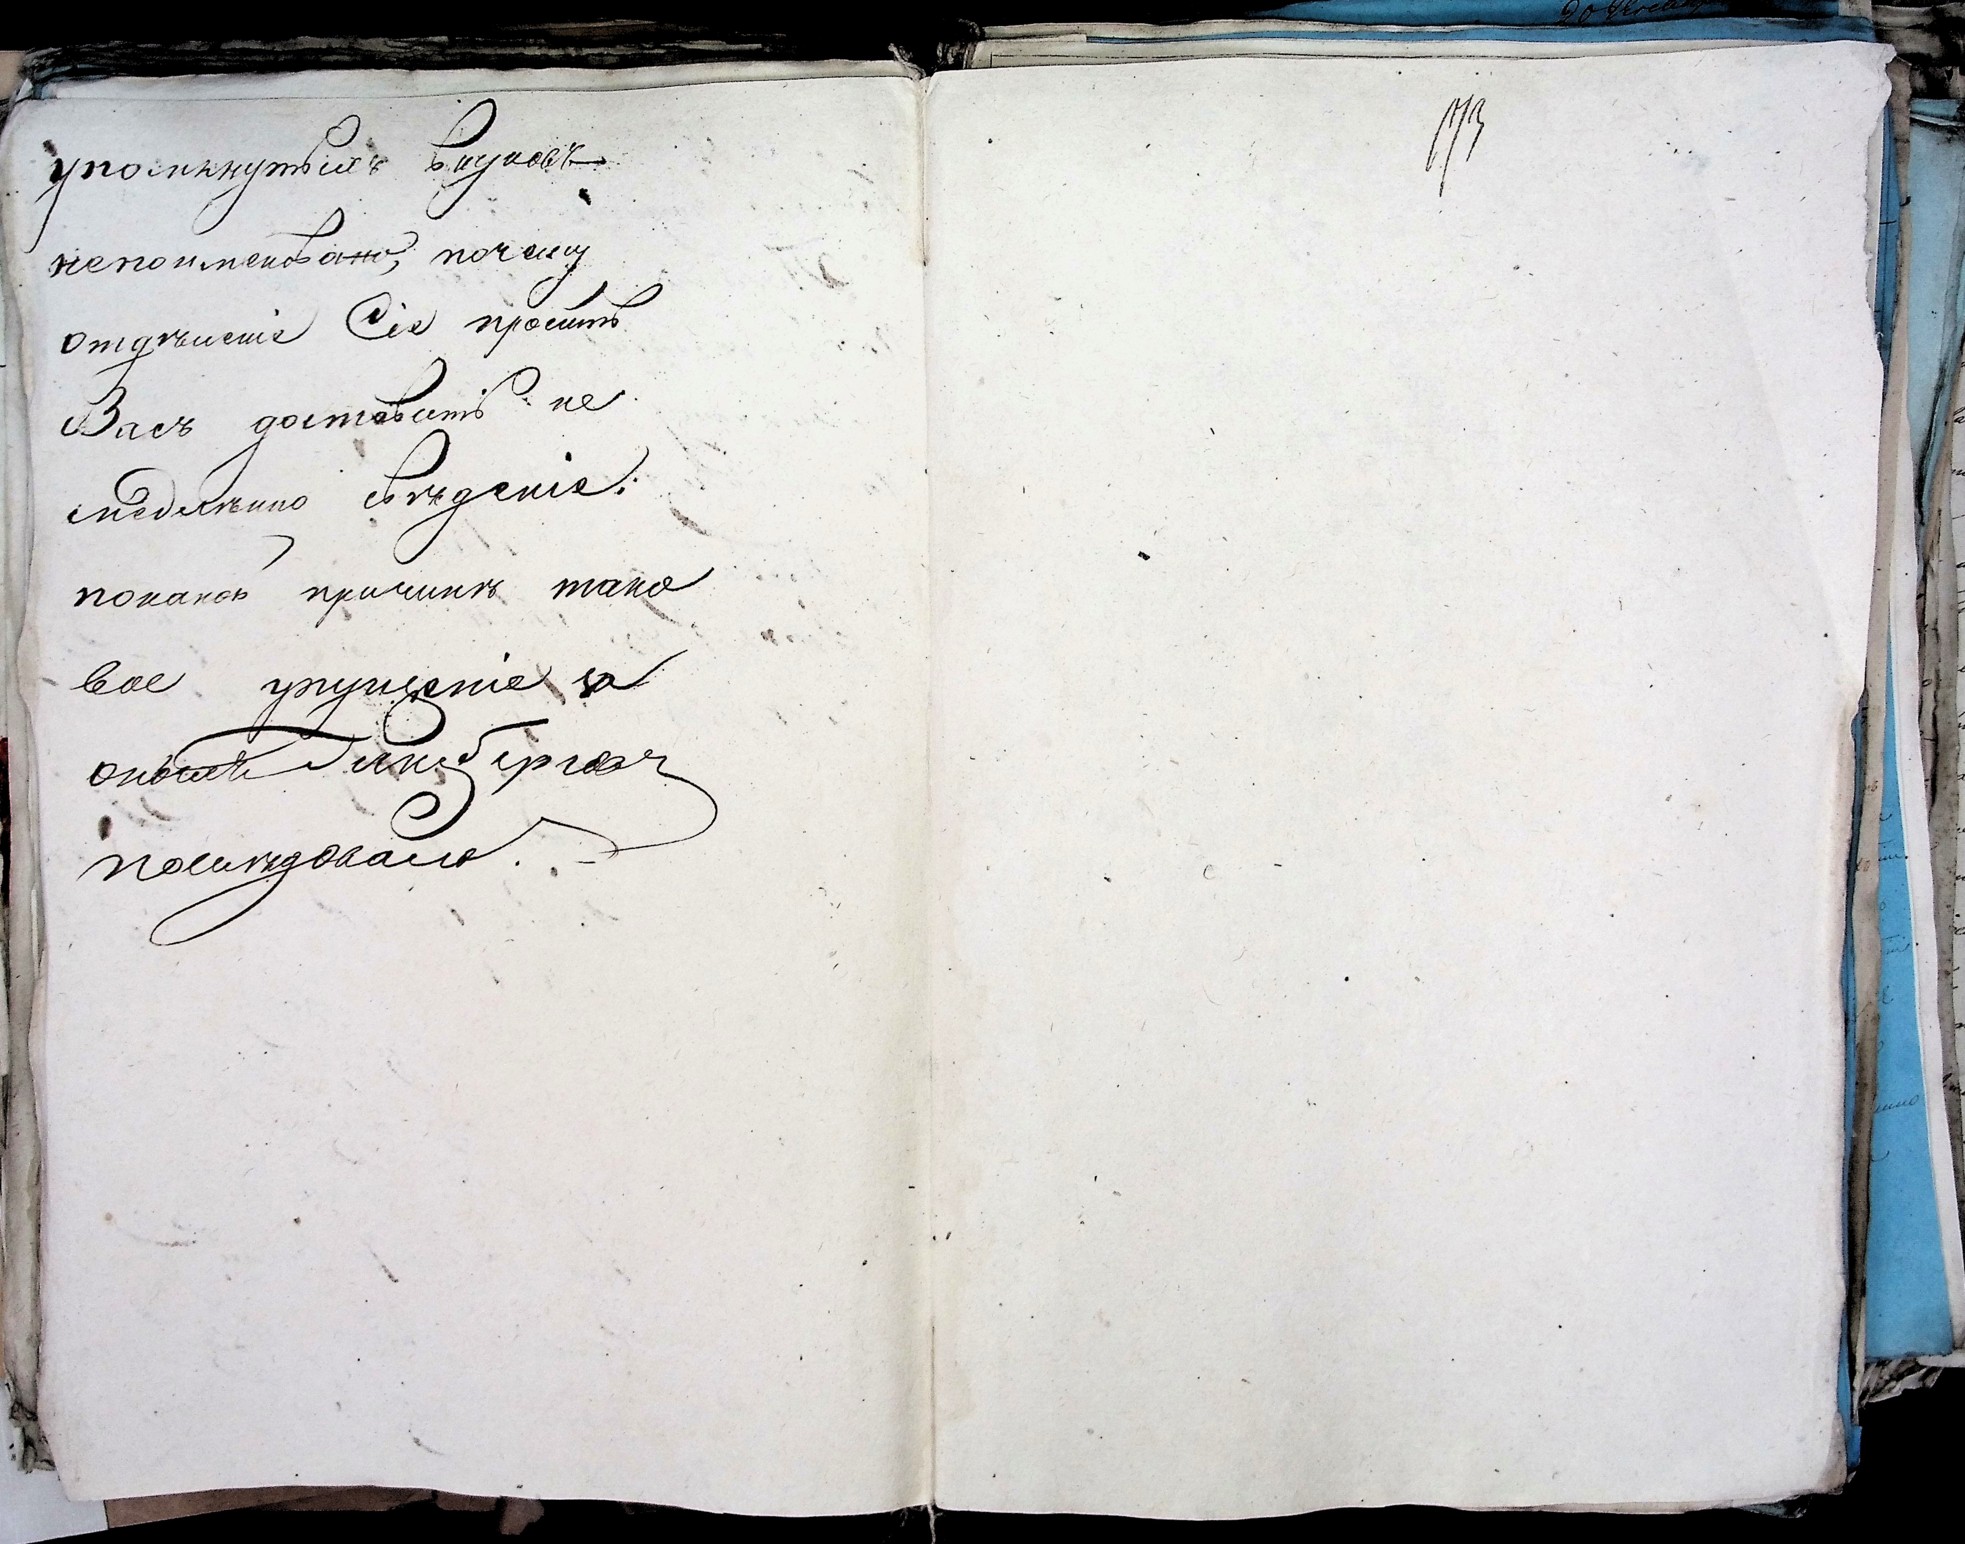 упомянутыхъ внуковъ
непоименовано, почему
отдѣленіе Сіе проситъ
Васъ доставить не
медлѣнно свѣденіе:
покакой причинѣ тако
вое упущеніе
онымъ Гинсбергомъ
послѣдовало.
173